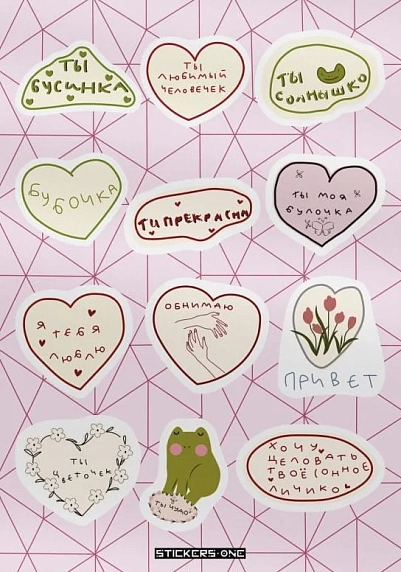 ты
бусинка
ты
любимый
человечек
ты
солнышко
бубочка
ти прекрасна
ты моя
булочка
я
тебя
люблю
обнимаю
привет
ты
цветочек
ты чудо!
хочу
целовать
твоё сонное
личико
STICKERS-ONE